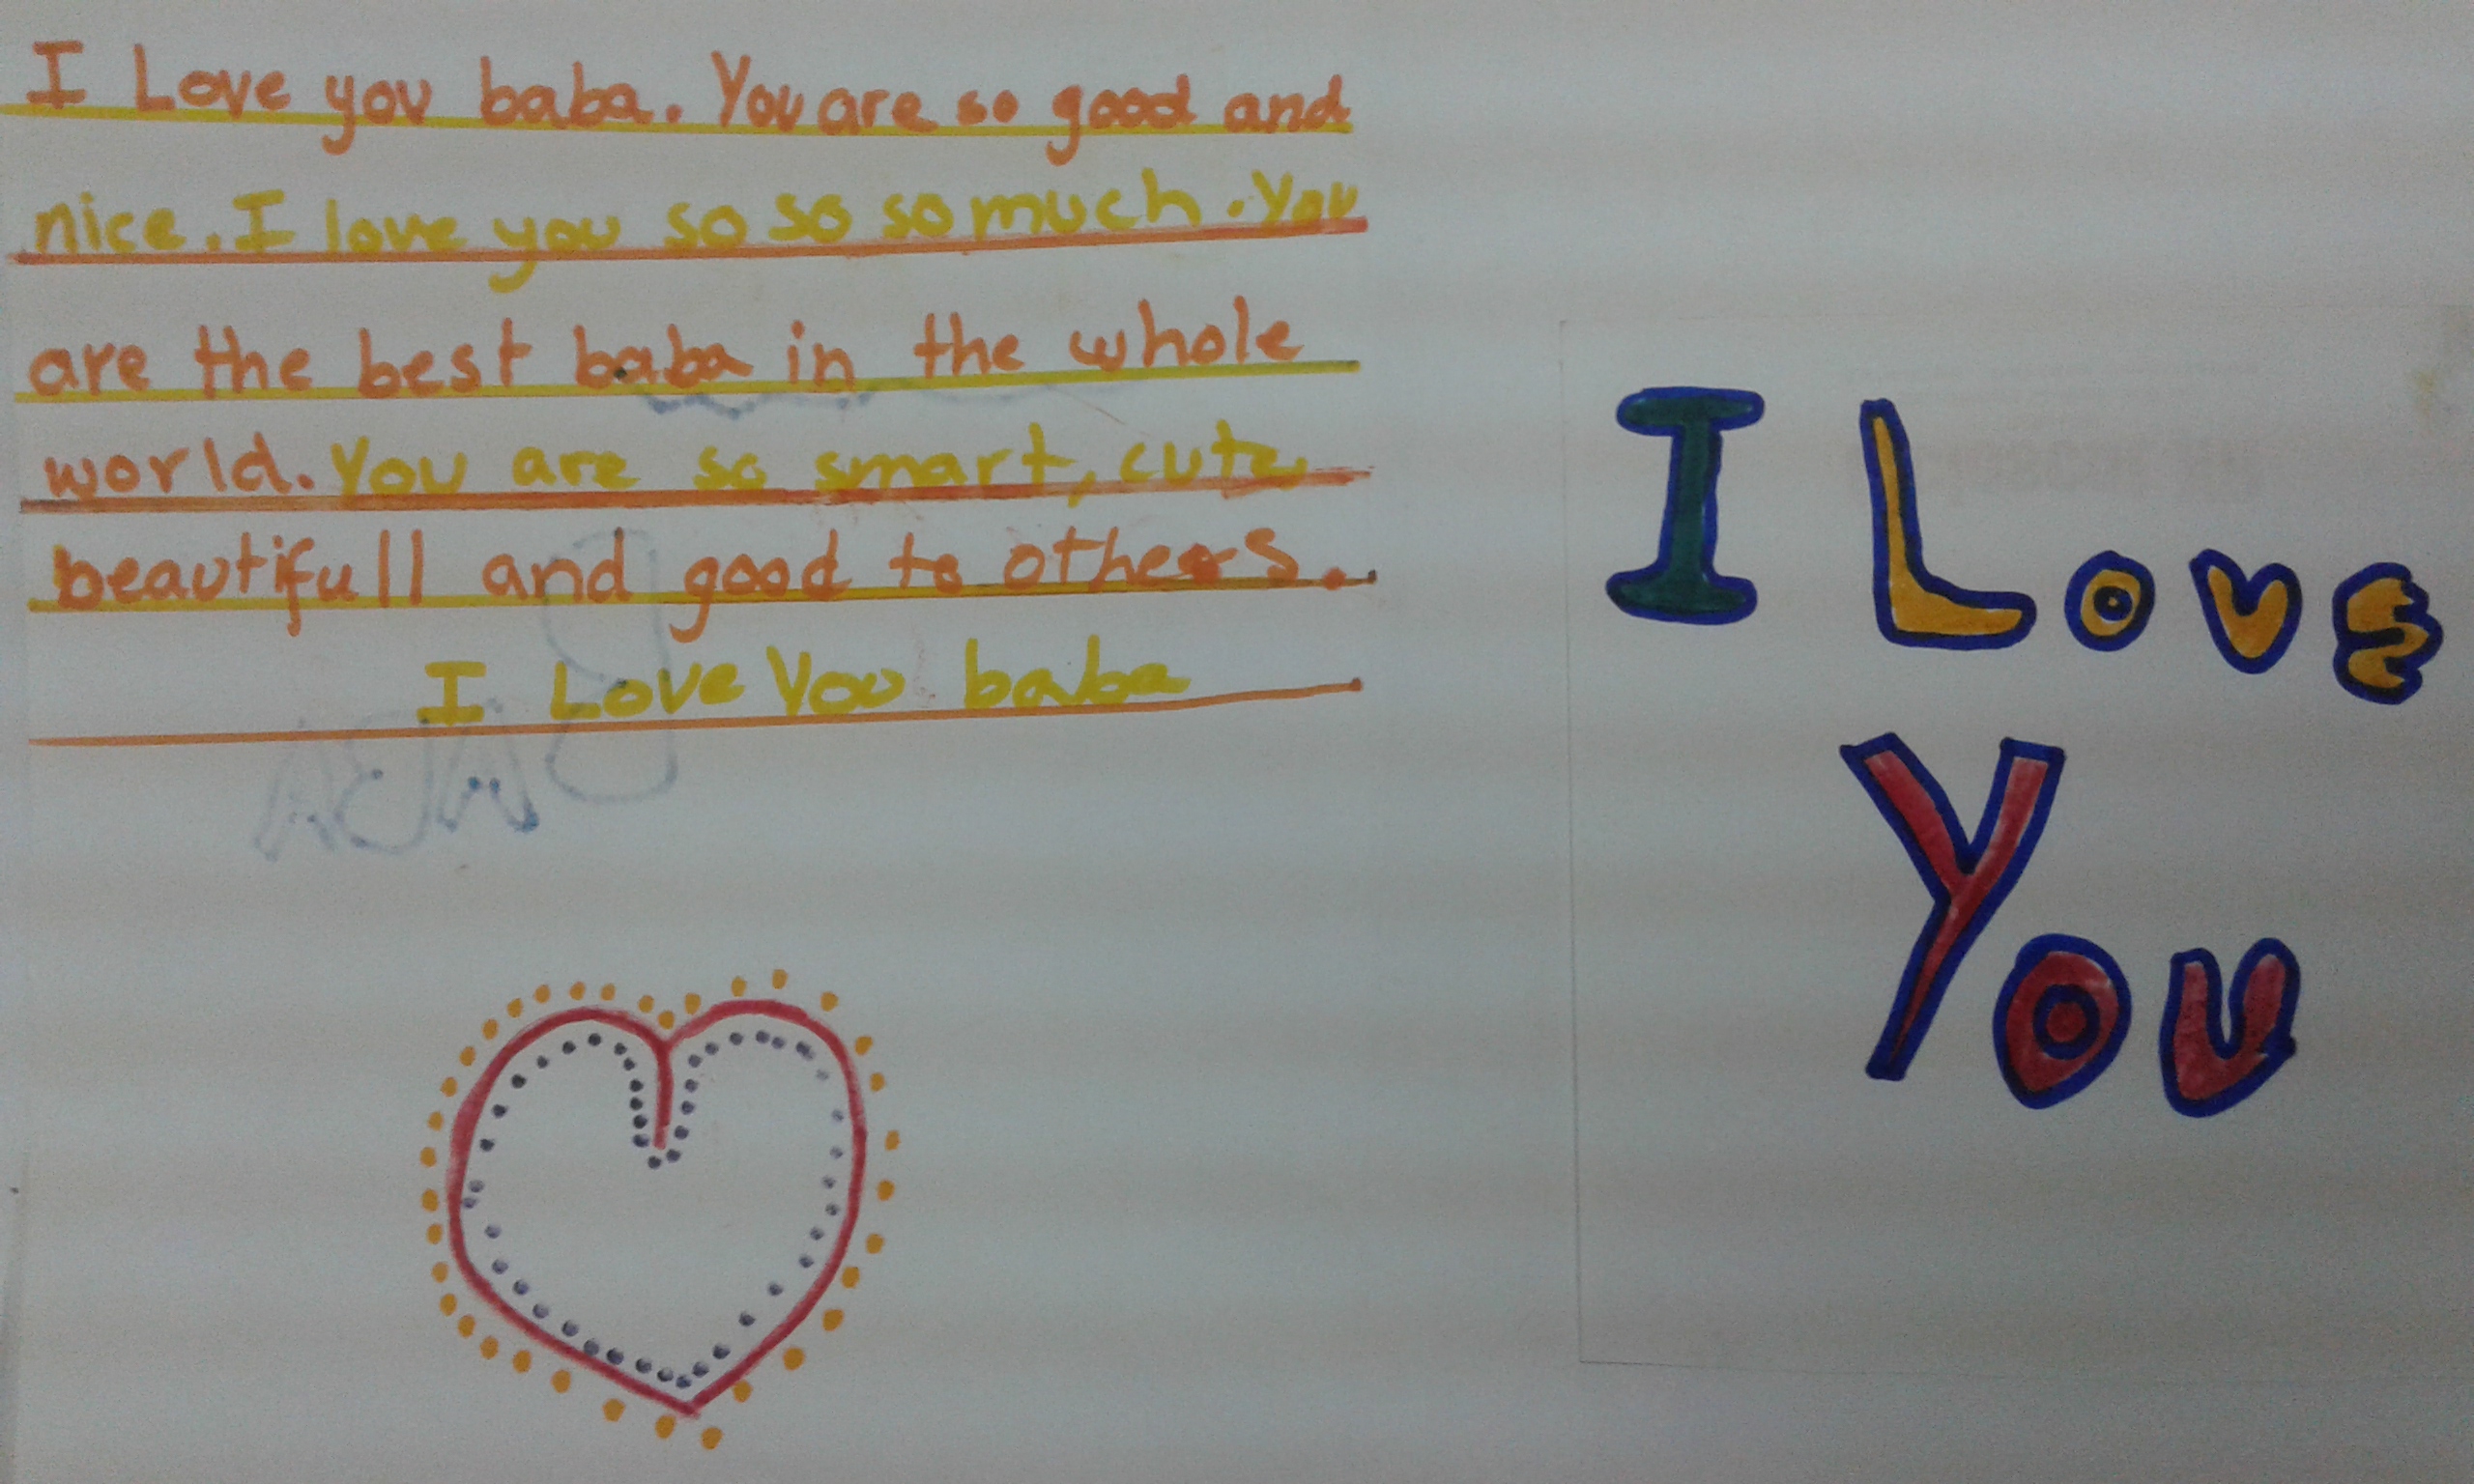 I Love you baba. You are so good and
nice. I love you so so so much. You
are the best baba in the whole
world. You are so smart, cute,
beautifull and good to others.
I Love You baba
I Love
You